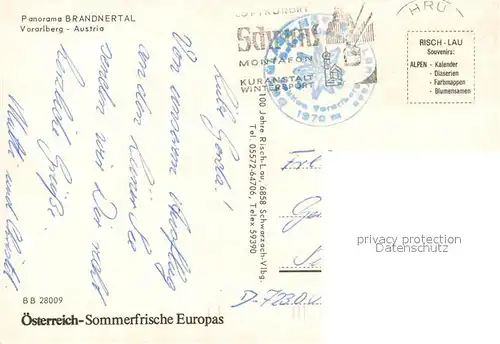 Panorama BRANDNERTAL
Vorarlberg - Austria
Liebe Gerda!
Von unserem Ausflug
an den Lüner See
senden wir Dir recht
herzliche Grüße.
und
BB 28009
Österreich-Sommerfrische Europas
100 Jahre Risch-Lau, 6858 Schwarzach-Vlbg.
Tel. 05572-64706, Telex 59390
LUFTKURORT
Schruns
MONTAFON
KURANSTALT
WINTERSPORT
Vorarlberg
1970 m
HRU
RISCH-LAU
Souvenirs:
ALPEN - Kalender
- Diaserien
- Farbmappen
- Blumensamen
D-7230
privacy protection
Datenschutz